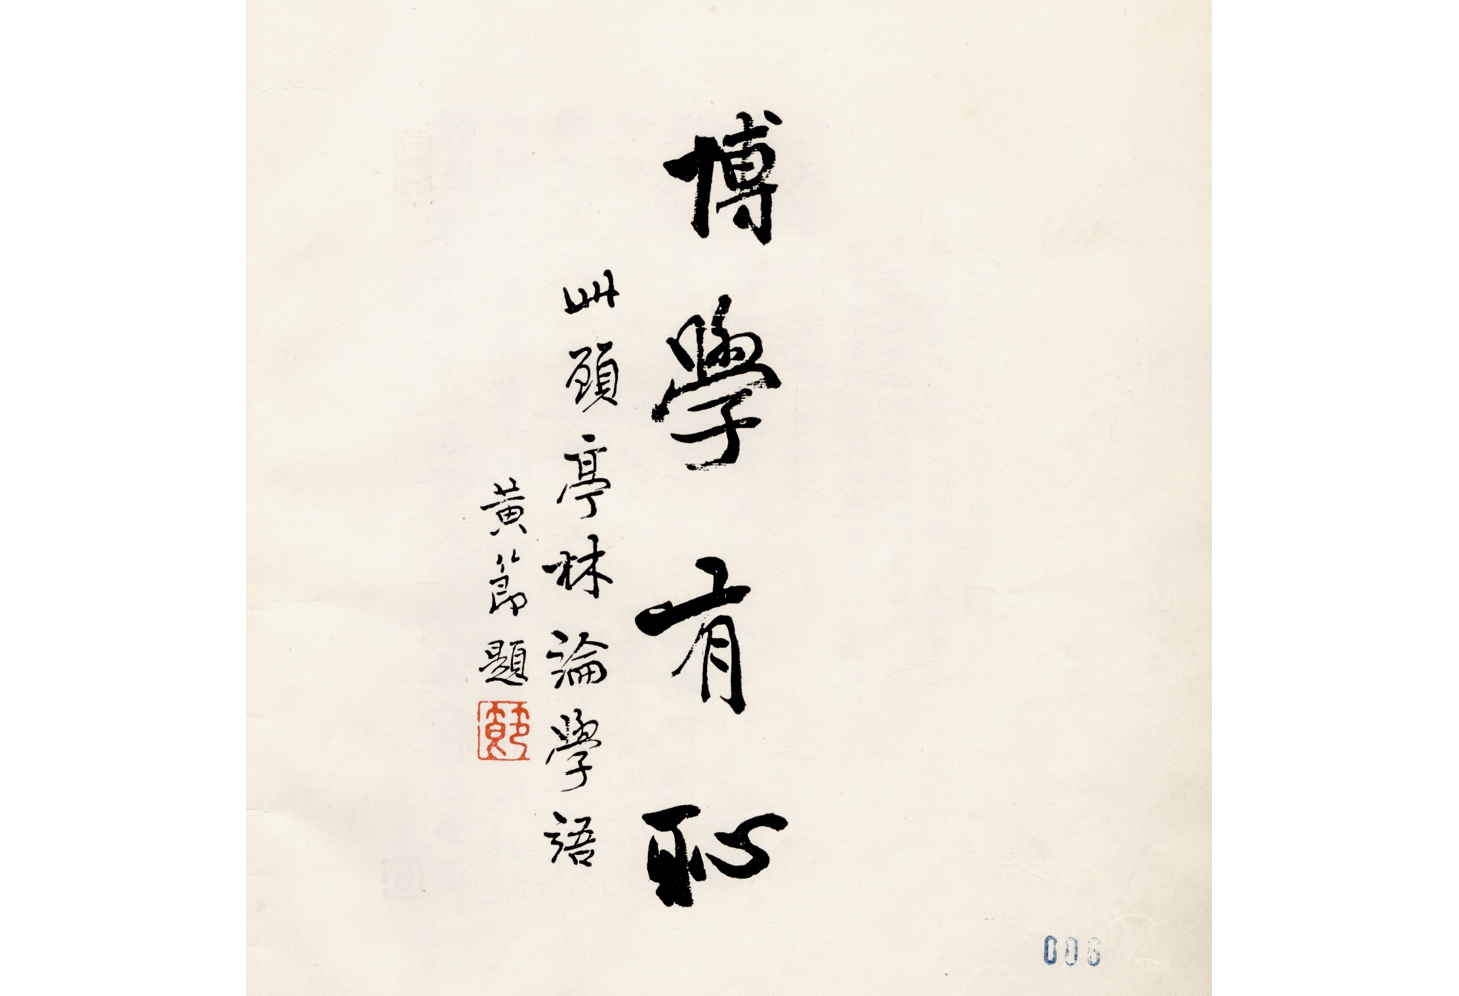 博學有恥
此顧亭林論學語
黃節題
006